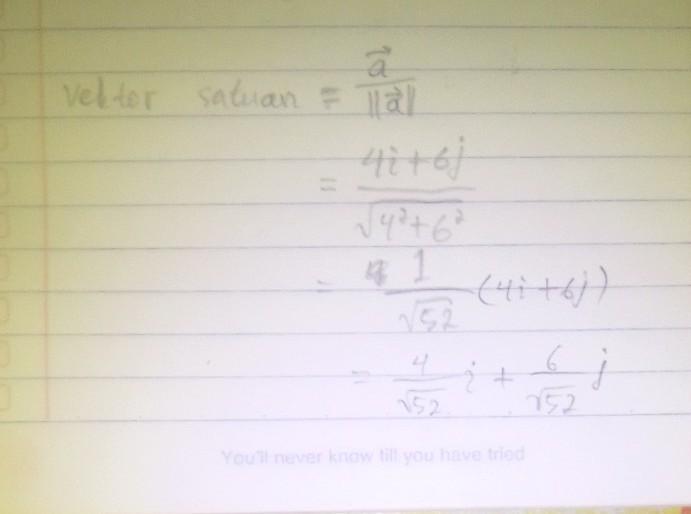 vektor satuan = a⃗ / ||a⃗||
= 4i + 6j / √4² + 6²
= 1 / √52 (4i + 6j)
= 4/√52 i + 6/√52 j
You'll never know till you have tried